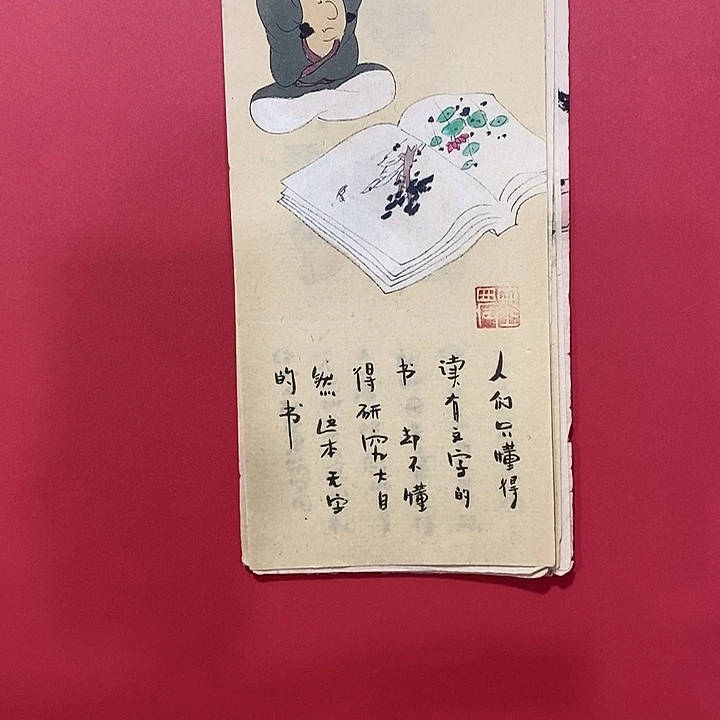 人们只懂得
读有文字的
书 却不懂
得研究大自
然 这本无字
的书